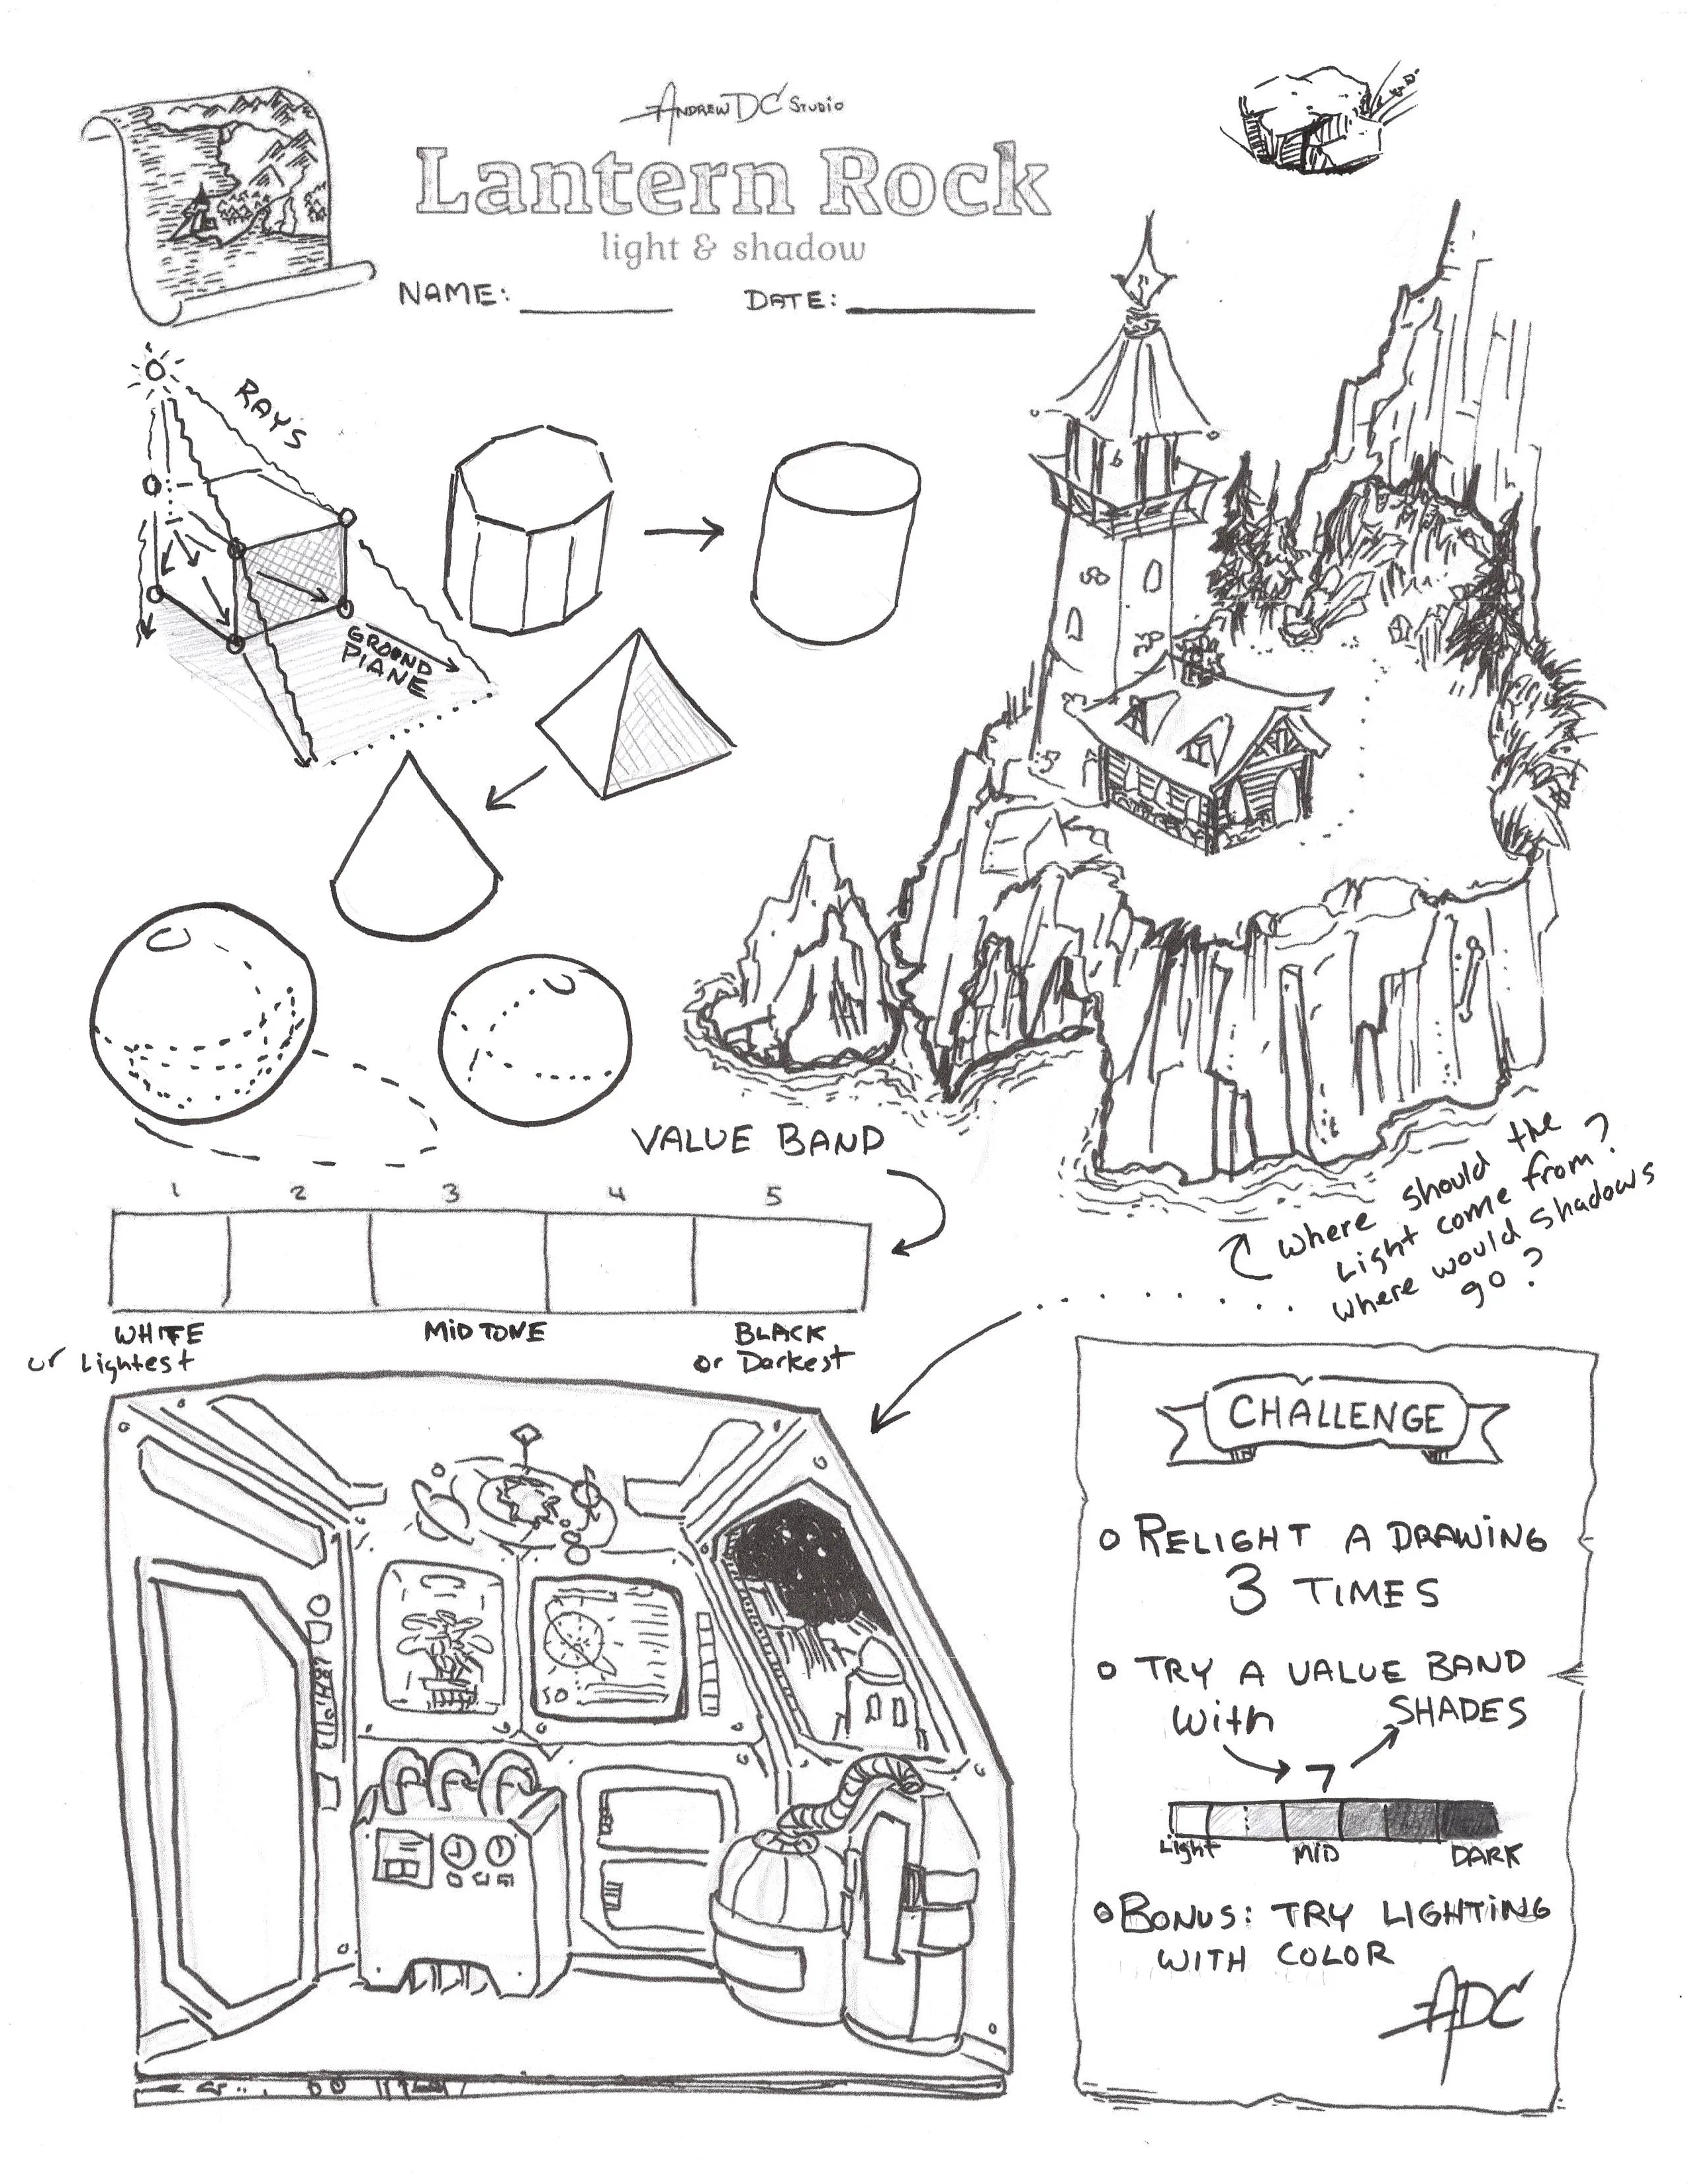 ANDREW DC STUDIO
Lantern Rock
light & shadow
NAME:
DATE:
RAYS
GROUND
PLANE
VALUE BAND
1 2 3 4 5
WHITE
or Lightest
MIDTONE
BLACK
or Darkest
where should the
Light come from?
where would shadows
go?
CHALLENGE
RELIGHT A DRAWING
3 TIMES
TRY A VALUE BAND
with
SHADES
7
Light
MID
DARK
BONUS: TRY LIGHTING
WITH COLOR
ADC